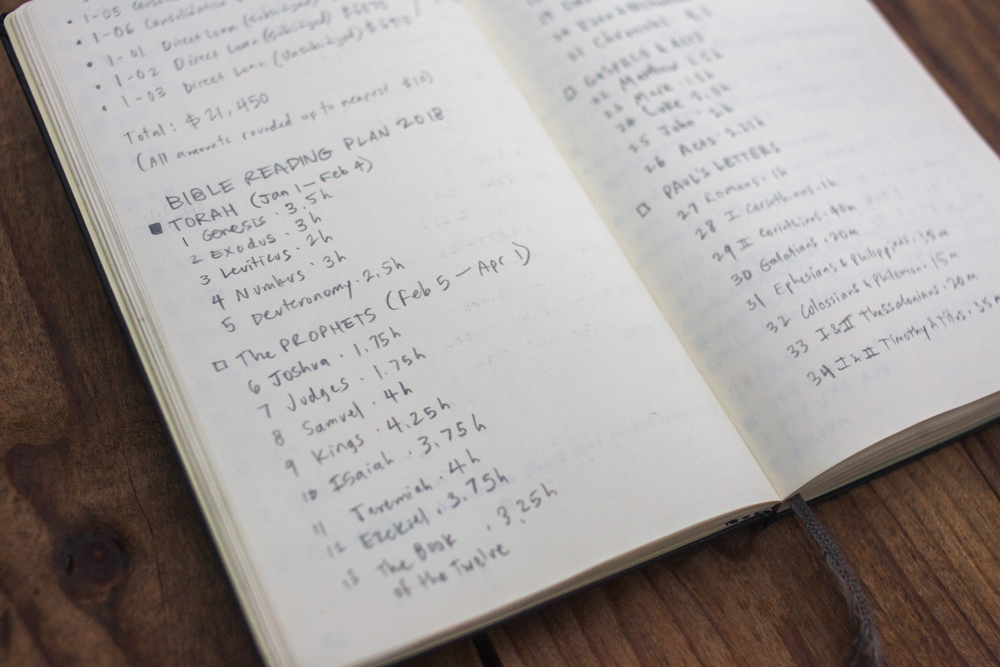 • 1-05
• 1-06 Consolidation
• 1-01 Direct Loan (subsidized)
• 1-02 Direct Loan (subsidized) $6070
• 1-03 Direct Loan (unsubsidized)
Total: $21,450
(All amounts rounded up to nearest $10)
BIBLE READING PLAN 2018
TORAH (Jan 1 – Feb 4)
1 Genesis · 3.5h
2 Exodus · 3h
3 Leviticus · 2h
4 Numbers · 3h
5 Deuteronomy · 2.5h
The PROPHETS (Feb 5 – Apr 1)
6 Joshua · 1.75h
7 Judges · 1.75h
8 Samuel · 4h
9 Kings · 4.25h
10 Isaiah · 3.75h
11 Jeremiah · 4h
12 Ezekiel · 3.75h
13 The Book · 3.25h
of the Twelve
21 Chronicles
GOSPELS & ACTS
22 Matthew
23 Mark · 1.5h
24 Luke
25 John
26 Acts · 2.25h
PAUL'S LETTERS
27 Romans · 1h
28 I Corinthians · 1h
29 II Corinthians · 40m
30 Galatians · 20m
31 Ephesians & Philippians · 35m
32 Colossians & Philemon · 15m
33 I & II Thessalonians · 20m
34 I & II Timothy & Titus · 35m